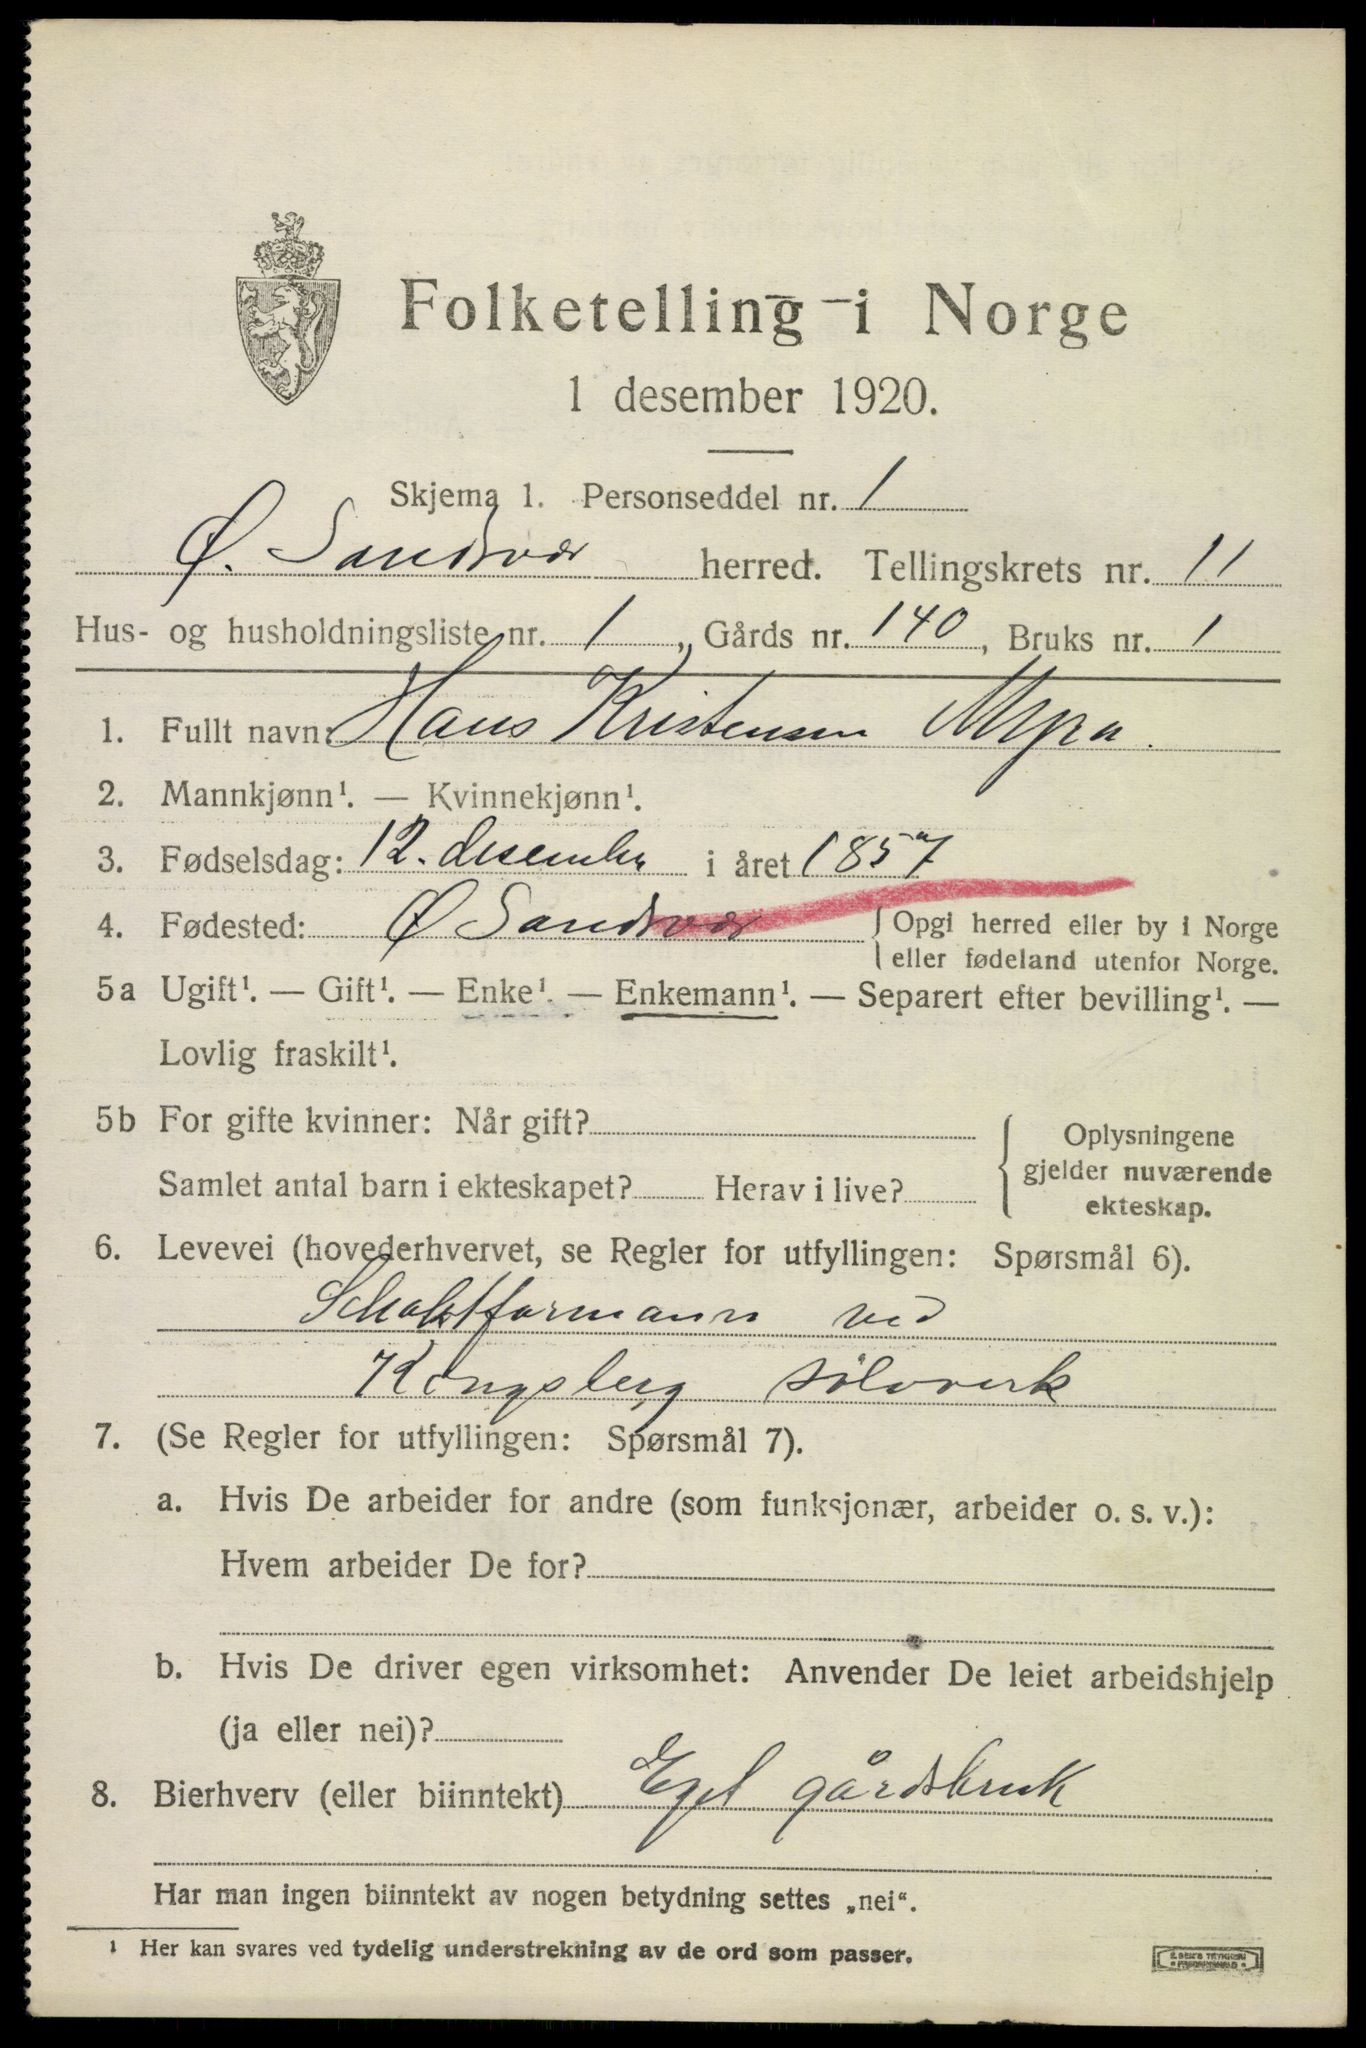 Folketelling i Norge
1 desember 1920.
Skjema 1. Personseddel nr. 1
Ø. Sandsvær herred. Tellingskrets nr. 11
Hus- og husholdningsliste nr. 1, Gårds nr. 140, Bruks nr. 1
1. Fullt navn: Hans Kristensen Myra.
2. Mannkjønn¹. — Kvinnekjønn¹.
3. Fødselsdag: 12. desember i året 1857
4. Fødested: Ø Sandsvær { Opgi herred eller by i Norge
eller fødeland utenfor Norge.
5a Ugift¹. — Gift¹. — Enke¹. — Enkemann¹. — Separert efter bevilling¹. —
Lovlig fraskilt¹.
5b For gifte kvinner: Når gift?
Samlet antal barn i ekteskapet? Herav i live?
Oplysningene
gjelder nuværende
ekteskap.
6. Levevei (hovederhvervet, se Regler for utfyllingen: Spørsmål 6).
Schaktformann ved
Kongsberg sølvverk
7. (Se Regler for utfyllingen: Spørsmål 7).
a. Hvis De arbeider for andre (som funksjonær, arbeider o. s. v.):
Hvem arbeider De for?
b. Hvis De driver egen virksomhet: Anvender De leiet arbeidshjelp
(ja eller nei)?
8. Bierhverv (eller biinntekt) Eget gårdsbruk
Har man ingen biinntekt av nogen betydning settes „nei“.
¹ Her kan svares ved tydelig understrekning av de ord som passer.